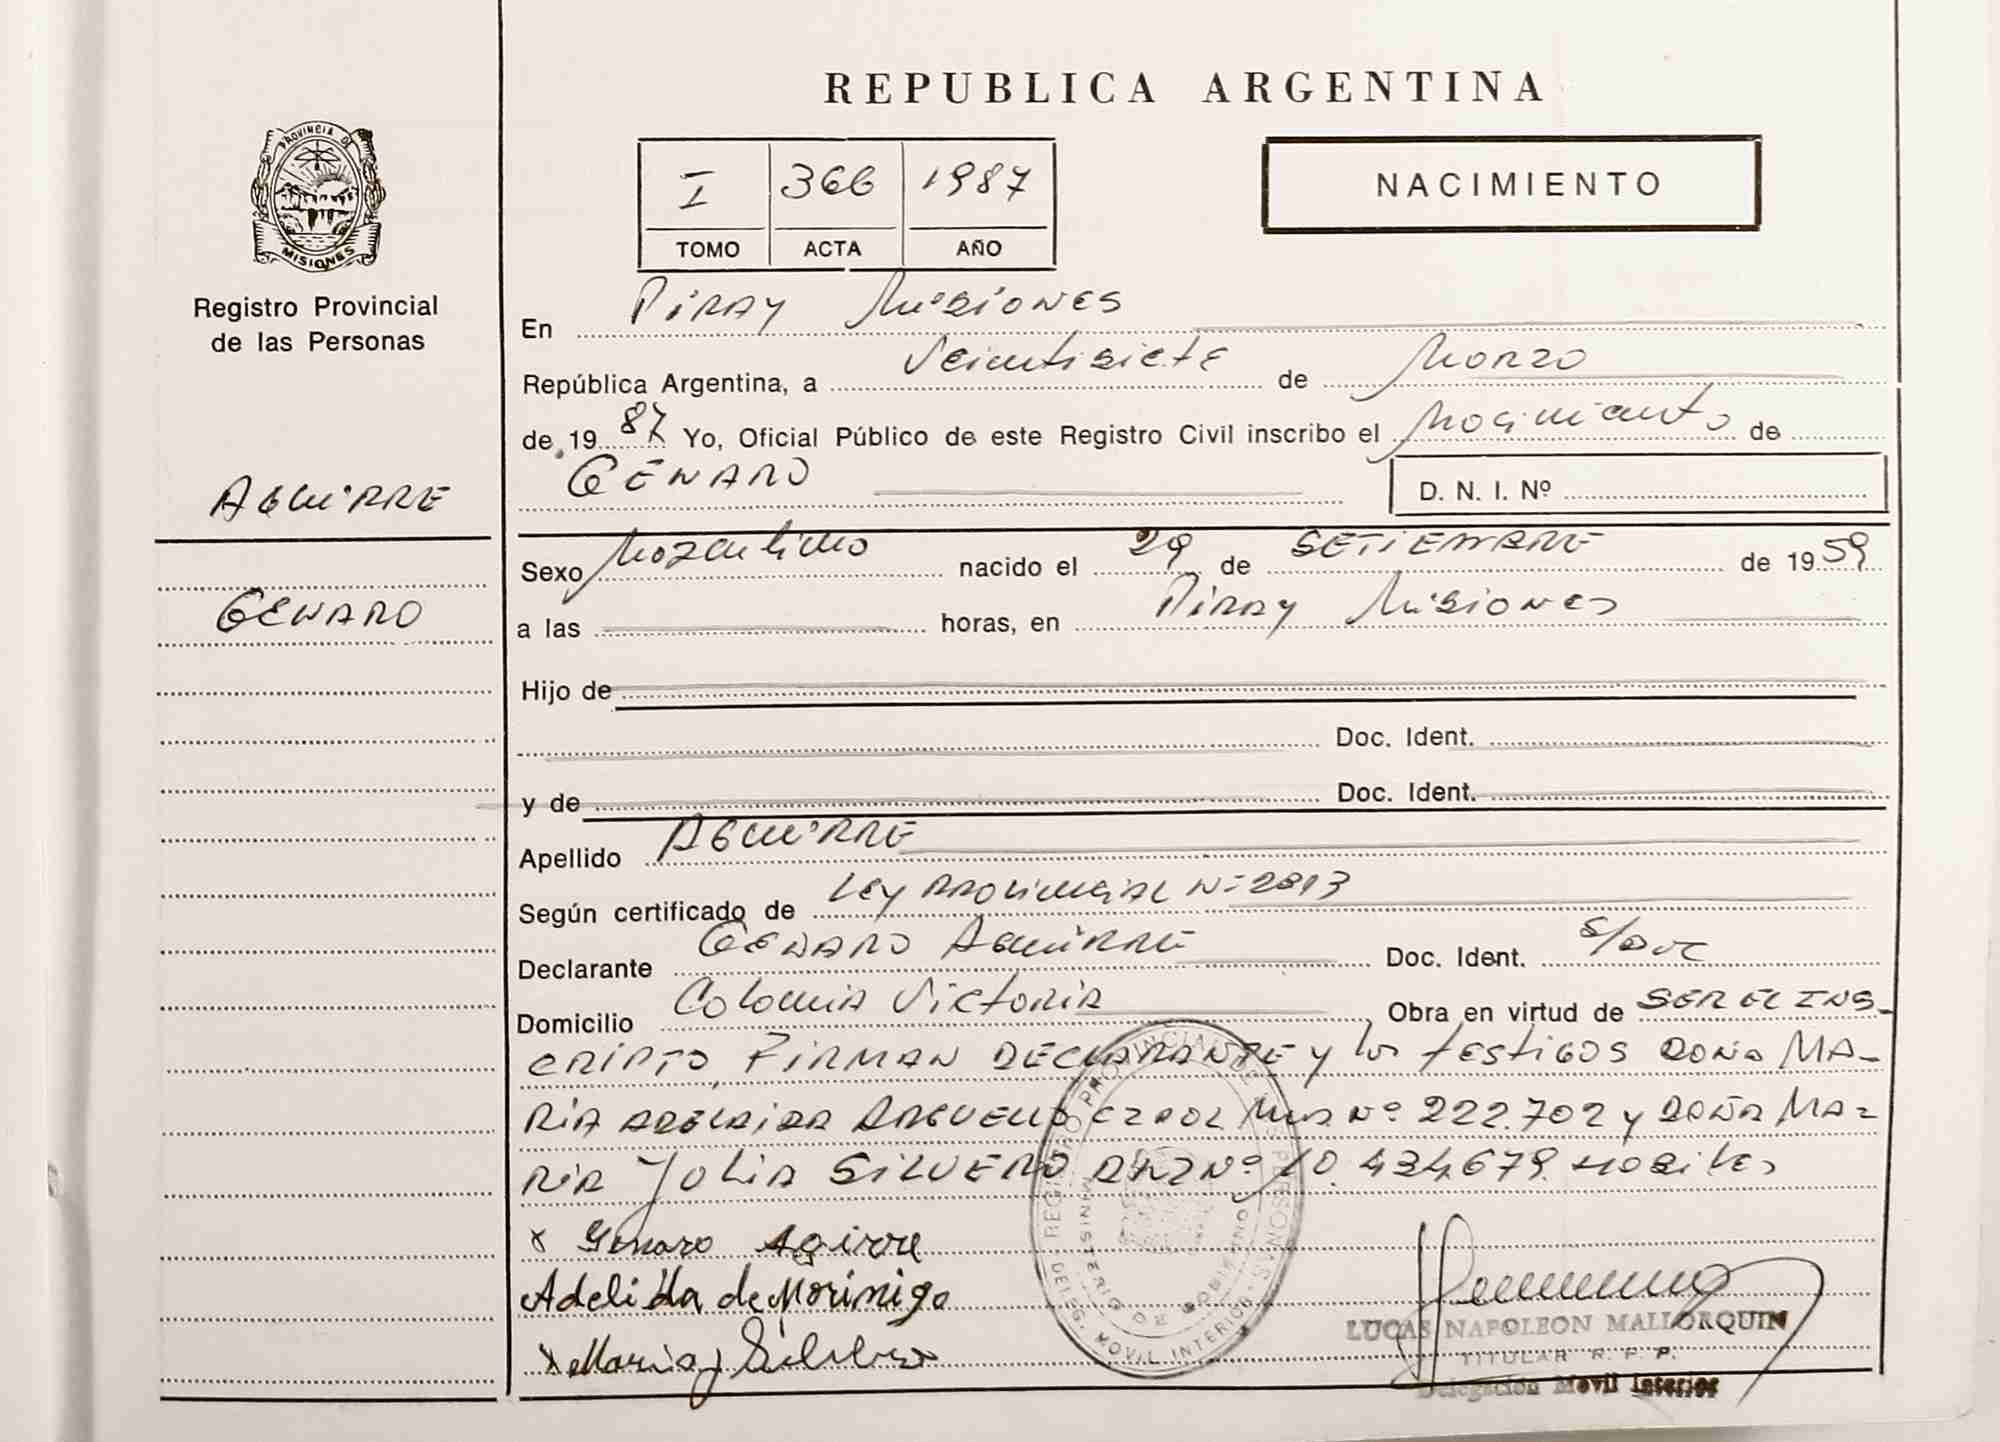 REPUBLICA ARGENTINA
PROVINCIA DE
MISIONES
Registro Provincial
de las Personas
I 366 1987
TOMO ACTA AÑO
NACIMIENTO
En Piray Misiones
República Argentina, a Veintisiete de Marzo
de 19 87 Yo, Oficial Público de este Registro Civil inscribo el Nacimiento de
GENARO D. N. I. Nº
AGUIRRE
GENARO
Sexo Masculino nacido el 29 de SETIEMBRE de 19 59
a las horas, en Piray Misiones
Hijo de
Doc. Ident.
y de Doc. Ident.
Apellido AGUIRRE
Según certificado de Ley Provincial Nº 2813
Declarante GENARO AGUIRRE Doc. Ident. S/Doc
Domicilio Colonia Victoria Obra en virtud de SER EL INS-
CRIPTO, FIRMAN DECLARANTE y los testigos DOÑA MA-
RIA ADELAIDA ARGUELLO Nº 222.702 y DOÑA MA-
RIA JULIA SILVERO DNI Nº 10.434.679. Habiles
x Genaro Agirre
Adelida de Morinigo
x Maria J Silvero
REGISTRO PROVINCIAL DE LAS PERSONAS
DELEG. MOVIL INTERIOR
MINISTERIO DE GOBIERNO
LUCAS NAPOLEON MALLORQUIN
TITULAR R. P. P.
Delegación Movil Interior